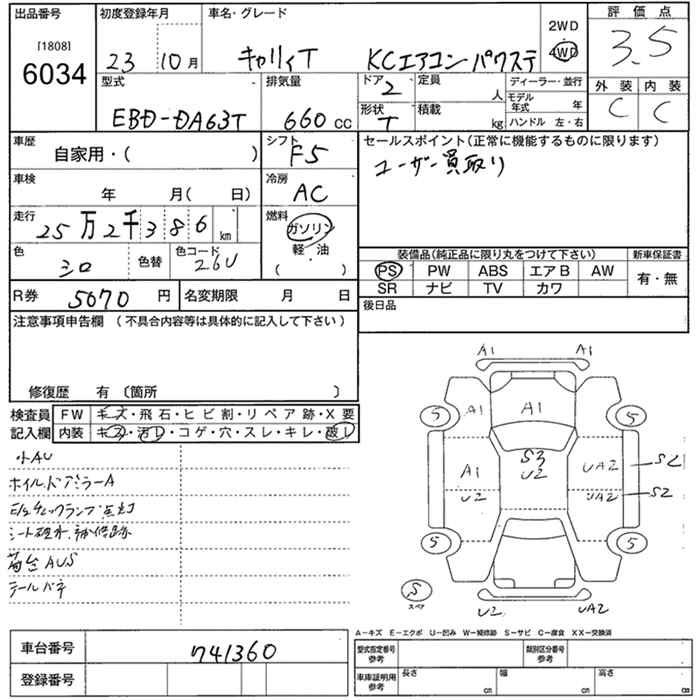 出品番号
[1808]
6034
初度登録年月
23 10月
車名・グレード
キャリィT KCエアコン パワステ
2WD
4WD
評価点
3.5
型式
EBD-DA63T
排気量
660 CC
ドア
2
形状
T
定員
人
積載
kg
ディーラー・並行
モデル年式 年
ハンドル 左・右
外装 内装
C C
車歴
自家用・( )
シフト
F5
セールスポイント(正常に機能するものに限ります)
ユーザー買取り
車検
年 月( 日)
冷房
AC
走行
25万2千386km
燃料
ガソリン
軽・油
( )
色
シロ
色替
色コード
26U
装備品(純正品に限り丸をつけて下さい)
新車保証書
PS PW ABS エアB AW
SR ナビ TV カワ
有・無
R券
5070円
名変期限 月 日
後日品
注意事項申告欄 (不具合内容等は具体的に記入して下さい)
修復歴 有 〔箇所 〕
検査員
記入欄
FW キズ・飛石・ヒビ割・リペア跡・X要
内装 キズ・汚レ・コゲ・穴・スレ・キレ・破レ
小AU
ホイル、ドアミラーA
E/gチェックランプ点灯
シート破れ、補修跡
荷台AUS
テールバネ
A1 A1
5 A1 A1 5
A1 S3 U2 UA2 S2
U2 UA2 S2
5 5
S
スペア
U2 UA2
A−キズ E−エクボ U−凹み W−補修跡 S−サビ C−腐食 XX−交換済
車台番号
741360
登録番号
型式指定番号
参考
類別区分番号
参考
車庫証明用
参考
長さ cm
幅 cm
高さ cm